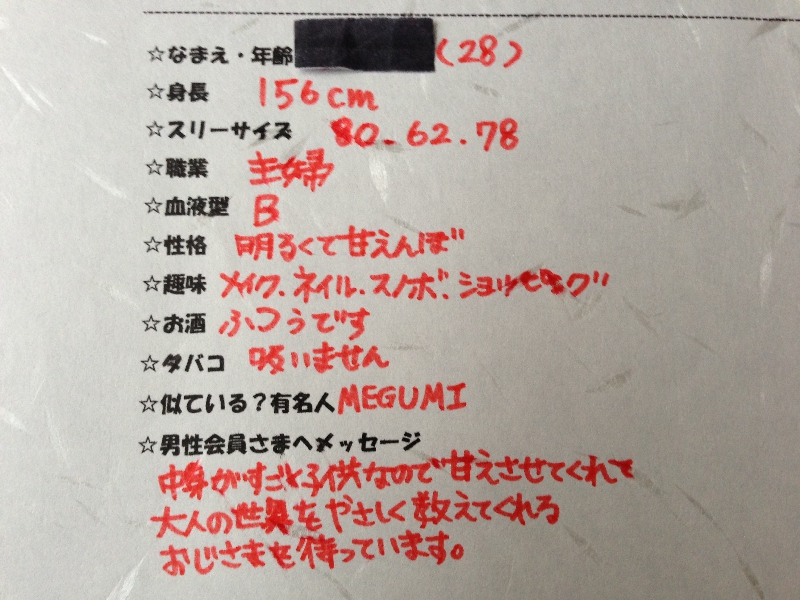 ☆なまえ・年齢 (28)
☆身長 156cm
☆スリーサイズ 80.62.78
☆職業 主婦
☆血液型 B
☆性格 明るくて甘えんぼ
☆趣味 メイク.ネイル.スノボ.ショッピング
☆お酒 ふつうです
☆タバコ 吸いません
☆似ている?有名人 MEGUMI
☆男性会員さまへメッセージ
中身がすごく子供なので甘えさせてくれて
大人の世界をやさしく教えてくれる
おじさまを待っています。